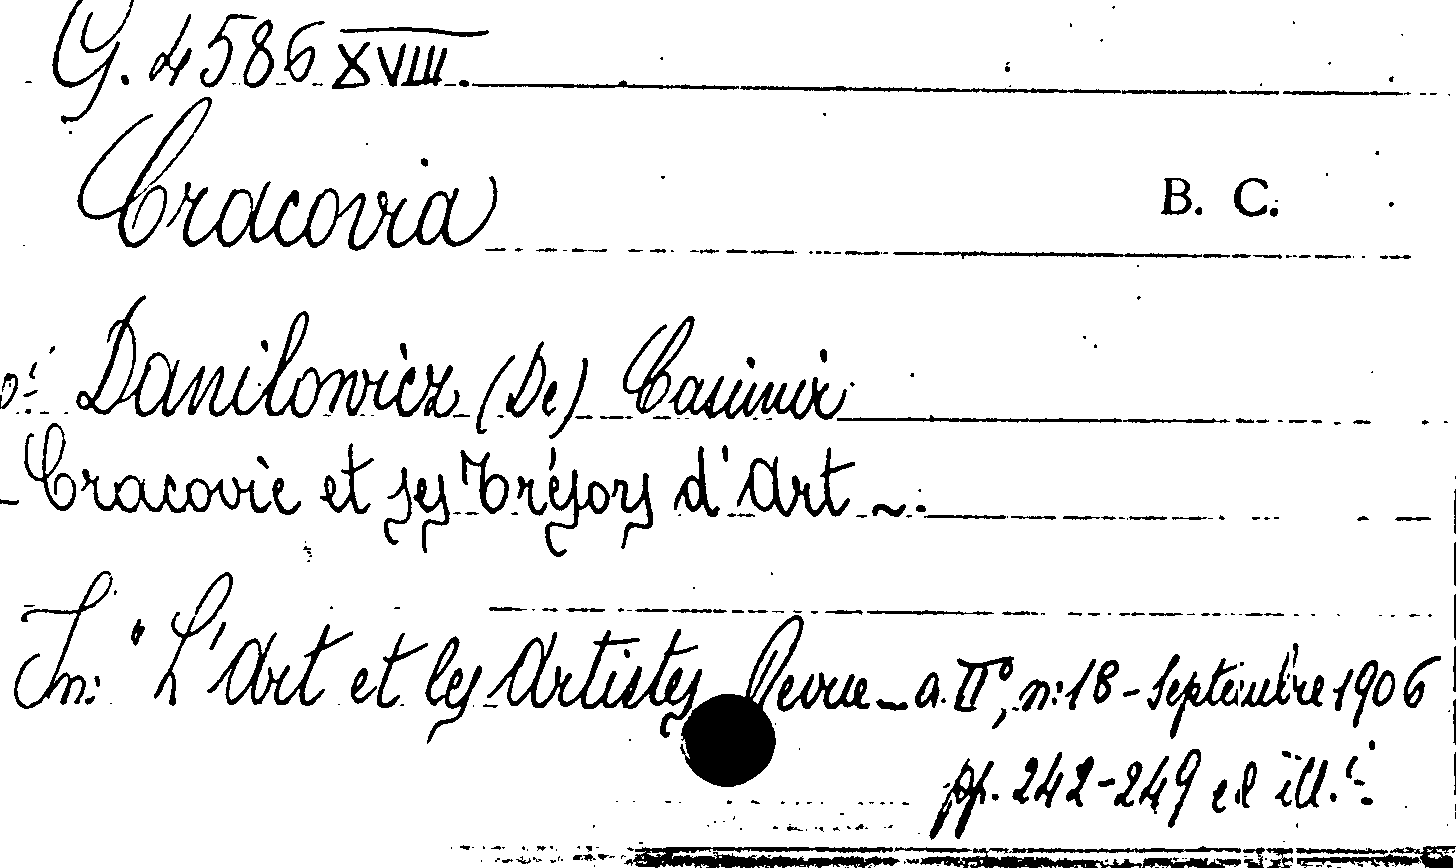 G. 4586 XVIII.
Cracovia
B. C.
Danilowicz (De) Casimir
- Cracovie et ses Trésors d'Art ~.
In: "L'Art et les Artistes Revue - a. II°, n: 18 - Septembre 1906
pp. 242-249 ed ill.